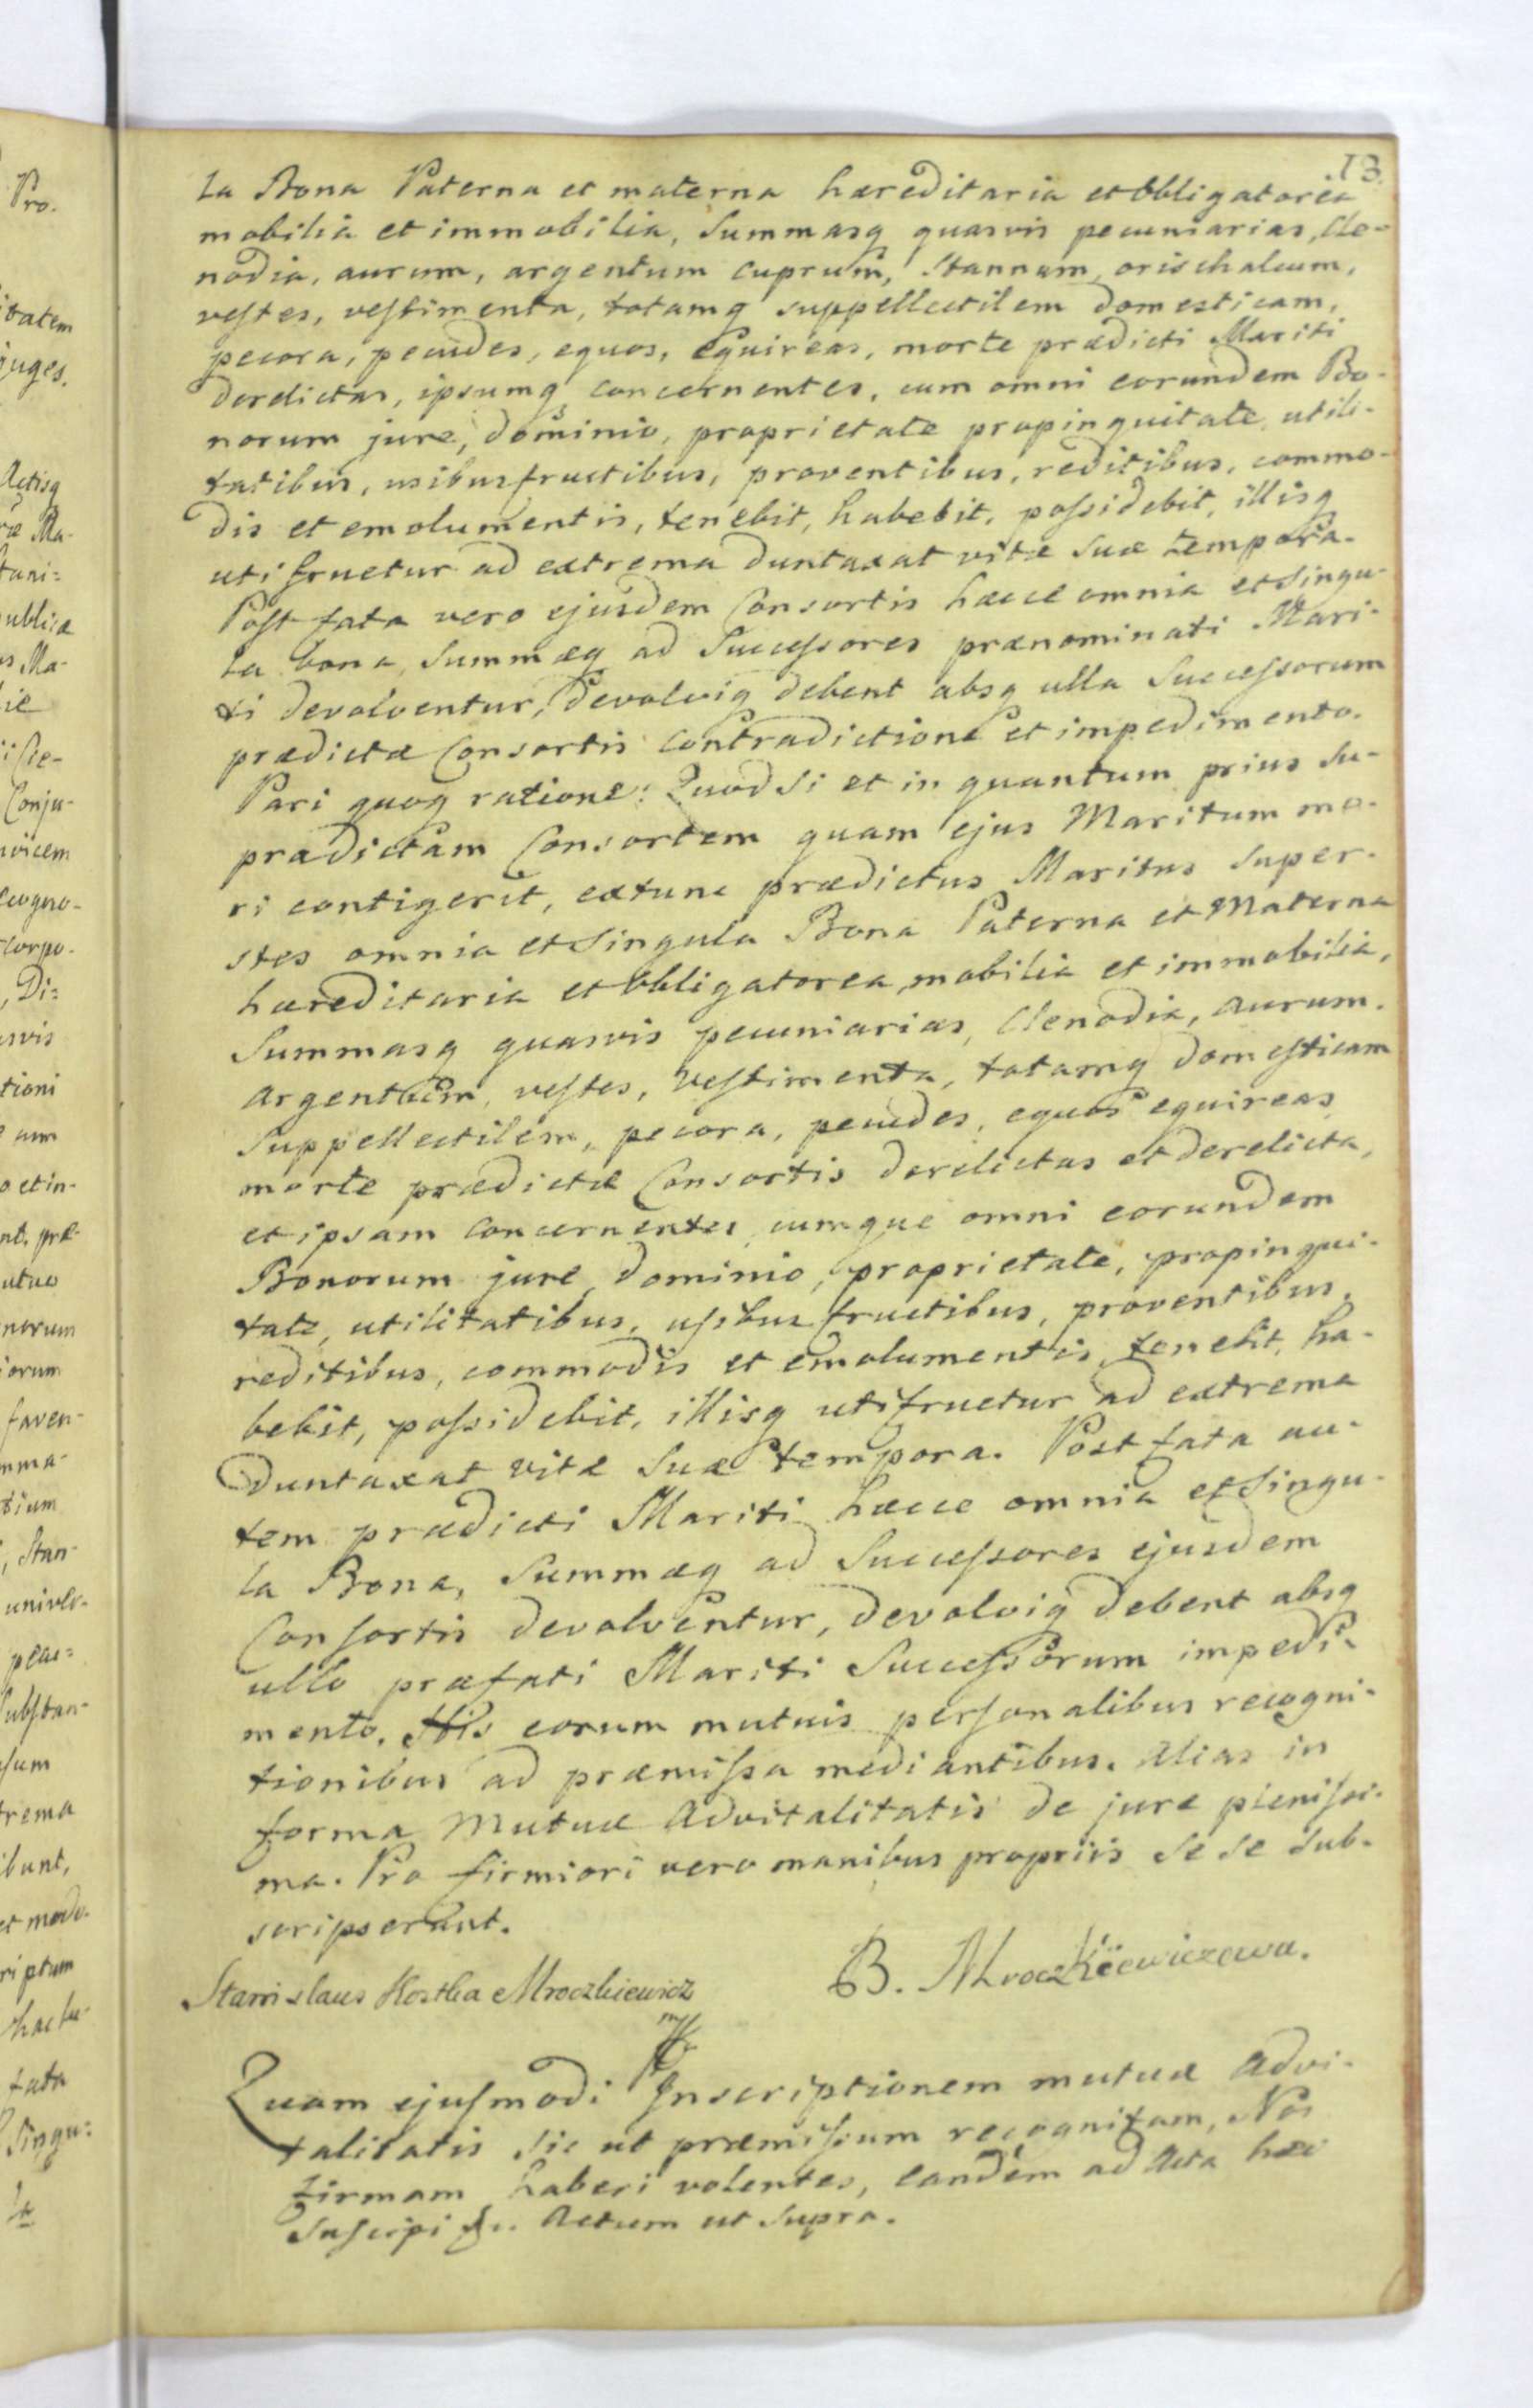 13.
la Bona Paterna et materna hæreditaria et obligatorea
mobilia et immobilia, Summasq quasvis pecuniarias, Cle-
nodia, aurum, argentum cuprum, Stannum, orischalcum,
vestes, vestimenta, totamq suppellectilem domesticam,
pecora, pecudes, equos, equireas, morte prædicti Mariti
derelictas, ipsumq concernentes, cum omni eorundem Bo-
norum jure, dominio, proprietate propinquitate, utili-
tatibus, usibusfructibus, proventibus, reditibus, commo-
dis et emolumentis, tenebit, habebit, possidebit, illisq
uti fruetur ad extrema duntaxat vitæ suæ tempora.
Post fata vero ejusdem Consortis hæcce omnia et Singu-
la bona, Summæq ad Successores prænominati Mari-
ti devolventur, devolviq debent absq ulla Successorum
prædictæ Consortis contradictione et impedimento.
Pari quoq ratione: Quod Si et in quantum prius Su-
pradictam Consortem quam ejus Maritum mo-
ri contigerit, extunc prædictus Maritus Super-
stes omnia et Singula Bona Paterna et Materna
hæreditaria et obligatorea, mobilia et immobilia,
Summasq quasvis pecuniarias, Clenodia, aurum.
argentum, vestes, vestimenta, totamq domesticam
Suppellectilem, pecora, pecudes, equos equireas
morte prædictæ Consortis derelictas et derelicta,
et ipsam concernentes, cumque omni eorundem
Bonorum jure, dominio, proprietate, propinqui-
tate, utilitatibus, usibus fructibus, proventibus,
reditibus, commodis et emolumentis, tenebit, ha-
bebit, possidebit, illisq utifruetur ad extrema
duntaxat vitæ Suæ tempora. Post fata au-
tem prædicti Mariti hæcce omnia et Singu-
la Bona, Summæq ad Successores ejusdem
Consortis devolventur, devolviq debent absq
ullo præfati Mariti Successorum impedi-
mento. His eorum mutuis personalibus recogni-
tionibus ad præmissa mediantibus. Alias in
forma Mutuæ Advitalitatis de jure plenissi-
ma. Pro firmiori vero manibus propriis Se Se Sub-
scripserunt.
Stanislaus Kostka Mroczkiewicz B. Mroczkiewiczowa.
Quam ejusmodi Inscriptionem mutuæ Advi-
talitatis Sic ut præmissum recognitam, Nos
firmam haberi volentes, eandem ad Acta hæc
Suscipi &c. Actum ut Supra.